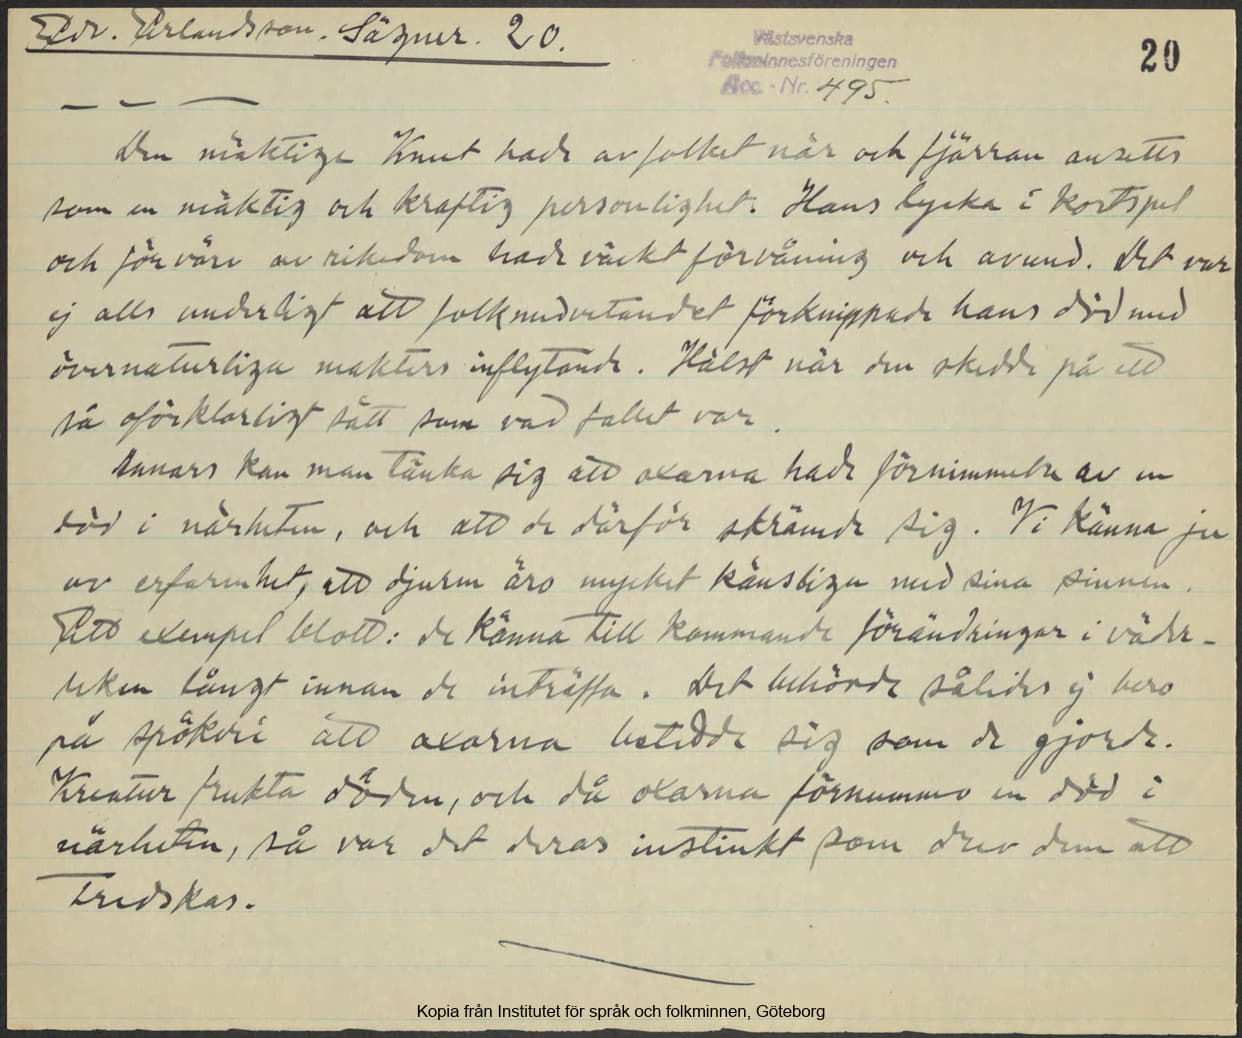 Edv. Erlandsson. Sägner. 20.
Västsvenska
Folkminnesföreningen
Acc. - Nr. 495.
20
Den mäktige Knut hade av folket när och fjärran ansetts
som en mäktig och kraftig personlighet. Hans lycka i kortspel
och förvärv av rikedom hade väckt förvåning och avund. Det var
ej alls underligt att folkmedvetandet förknippade hans död med
övernaturliga makters inflytande. Hälst när den skedde på ett
så oförklarligt sätt som vad fallet var.
Annars kan man tänka sig att oxarna hade förnimmelse av en
död i närheten, och att de därför skrämde sig. Vi känna ju
av erfarenhet, att djuren äro mycket känsliga med sina sinnen.
Ett exempel blott: de känna till kommande förändringar i väder-
leken långt innan de inträffa. Det behövde således ej bero
på spökeri att oxarna betedde sig som de gjorde.
Kreatur frukta döden, och då oxarna förnummo en död i
närheten, så var det deras instinkt som drev dem att
tredskas.
Kopia från Institutet för språk och folkminnen, Göteborg